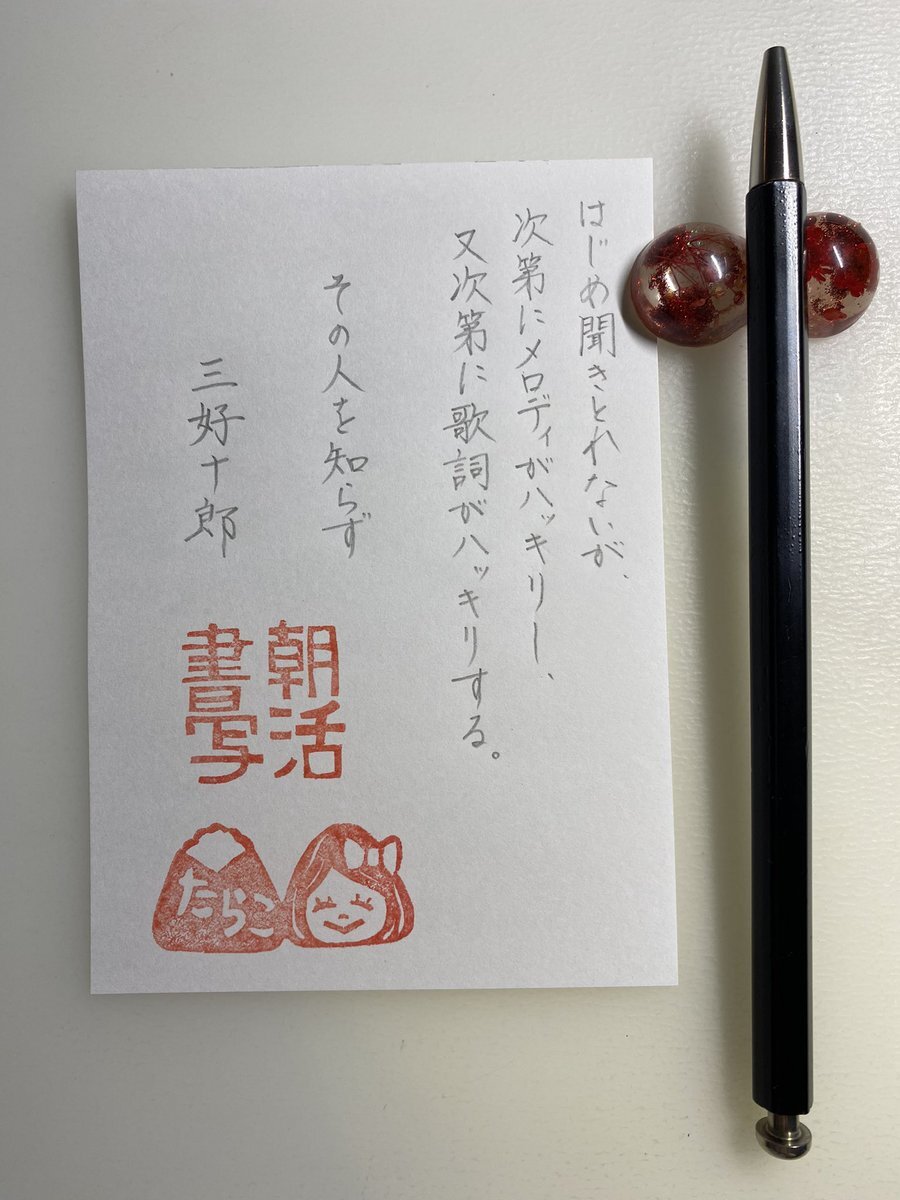 はじめ聞きとれないが、
次第にメロディがハッキリし、
又次第に歌詞がハッキリする。
その人を知らず
三好十郎
朝活
書写
たらこ